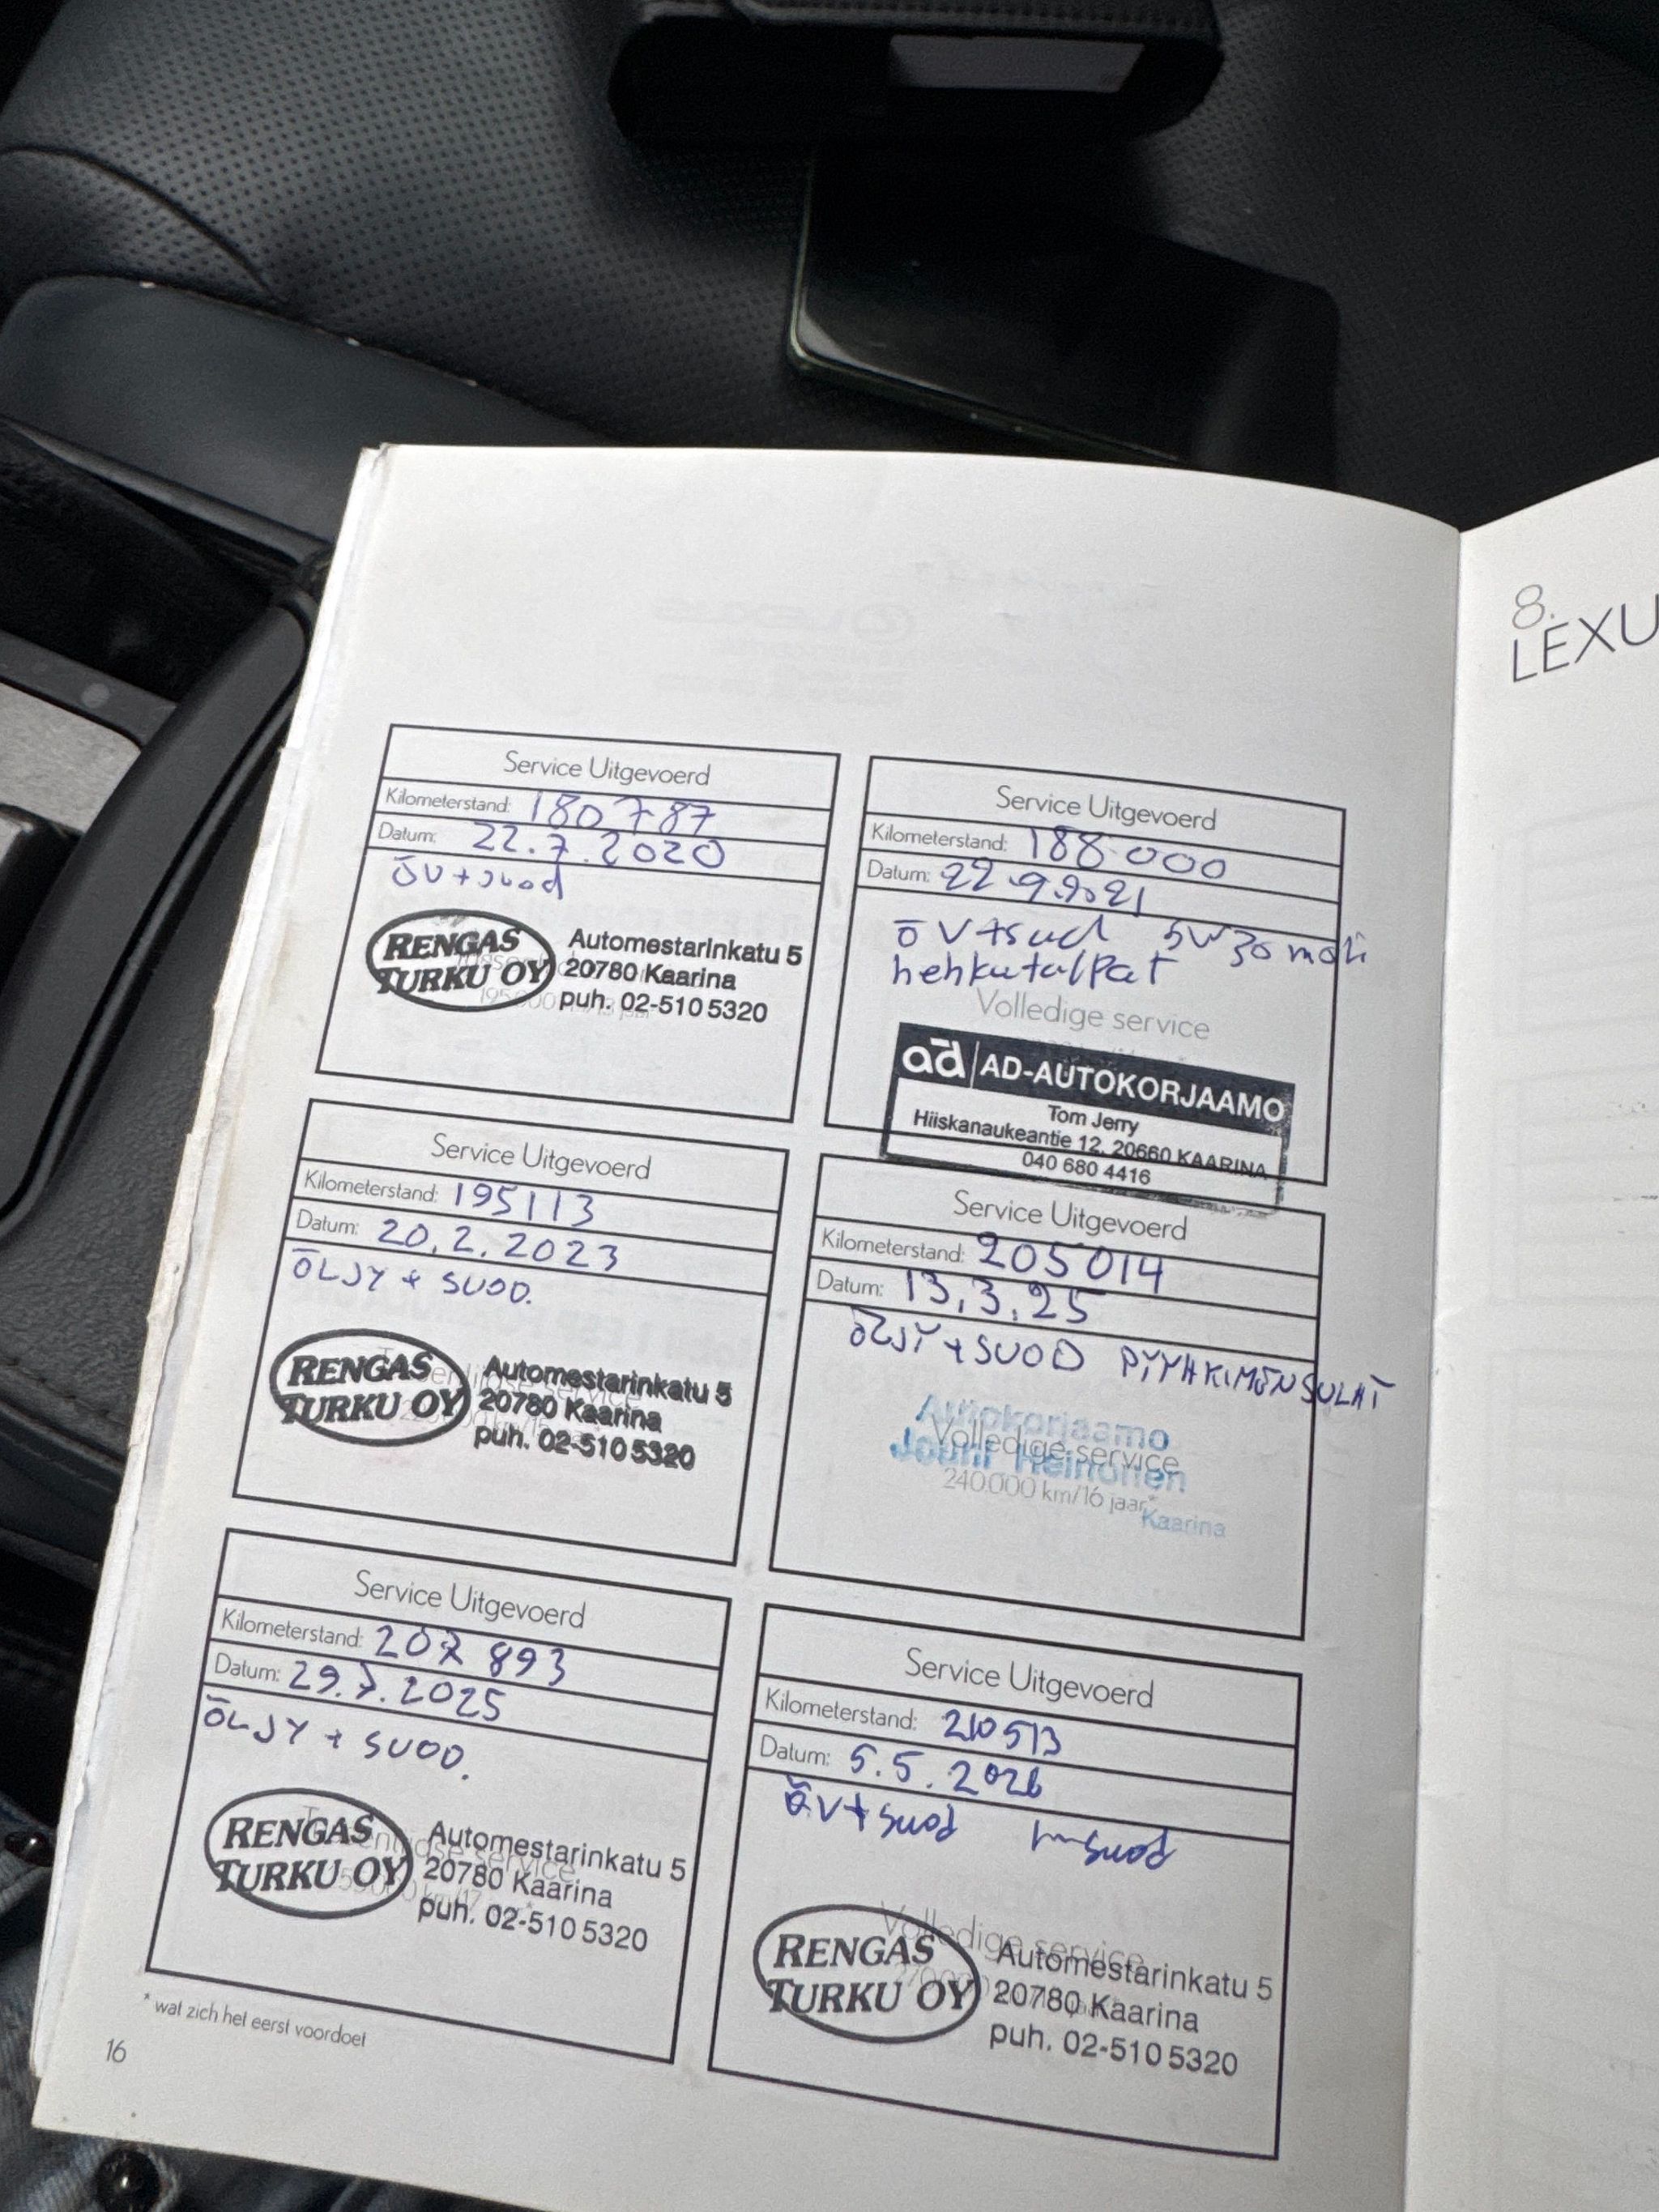 8.
LEXU
Service Uitgevoerd
Kilometerstand: 180 787
Datum: 22.7.2020
ÖV+suod
RENGAS
TURKU OY
Automestarinkatu 5
20780 Kaarina
puh. 02-510 5320
Service Uitgevoerd
Kilometerstand: 188 000
Datum: 22.9.2021
ÖV+suod 5W30 mobi
hehkutulpat
Volledige service
ad AD-AUTOKORJAAMO
Tom Jerry
Hiiskanaukeantie 12, 20660 KAARINA
040 680 4416
Service Uitgevoerd
Kilometerstand: 195113
Datum: 20.2.2023
ÖLJY + SUOD.
RENGAS
TURKU OY
Automestarinkatu 5
20780 Kaarina
puh. 02-510 5320
Service Uitgevoerd
Kilometerstand: 205014
Datum: 13.3.25
ÖLJY + SUOD PYYHKIMÖNSULAT
Autokorjaamo
Volledige service
Jouni Heinonen
240.000 km/16 jaar*
Kaarina
Service Uitgevoerd
Kilometerstand: 207 893
Datum: 29.7.2025
ÖLJY + SUOD.
RENGAS
TURKU OY
Automestarinkatu 5
20780 Kaarina
puh. 02-510 5320
Service Uitgevoerd
Kilometerstand: 210513
Datum: 5.5.2026
ÖV+suod
Volledige service
RENGAS
TURKU OY
Automestarinkatu 5
20780 Kaarina
puh. 02-510 5320
* wat zich het eerst voordoet
16